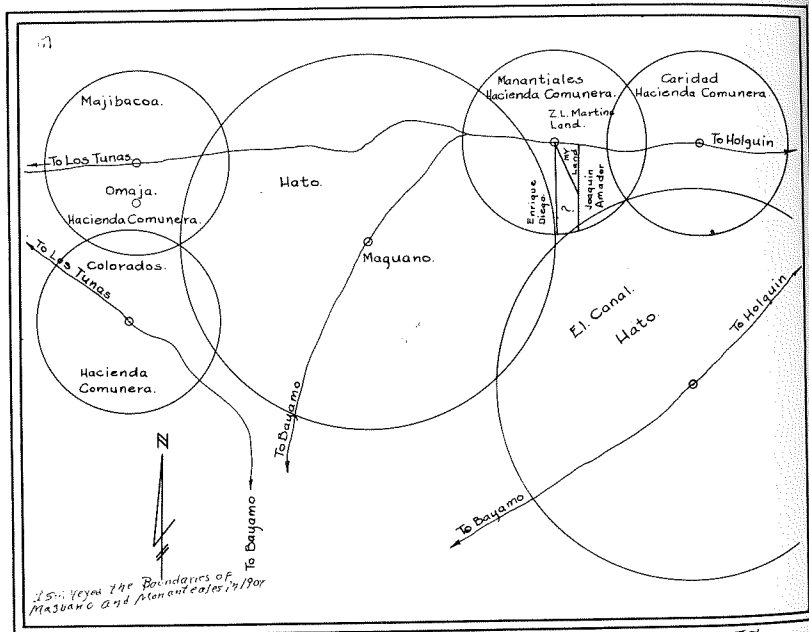 Majibacoa.
To Los Tunas
Omaja.
Hacienda Comunera.
To Los Tunas
Colorados.
Hacienda
Comunera.
Hato.
Maguano.
To Bayamo
To Bayamo
Manantiales
Hacienda Comunera.
Z.L. Martine
Land.
MY
Land
Enrique
Diego.
?
Joaquin
Amador
Caridad
Hacienda Comunera.
To Holguin
El. Canal.
Hato.
To Holguin
To Bayamo
N
I Surveyed the Boundaries of
Maguano and Mananteales in